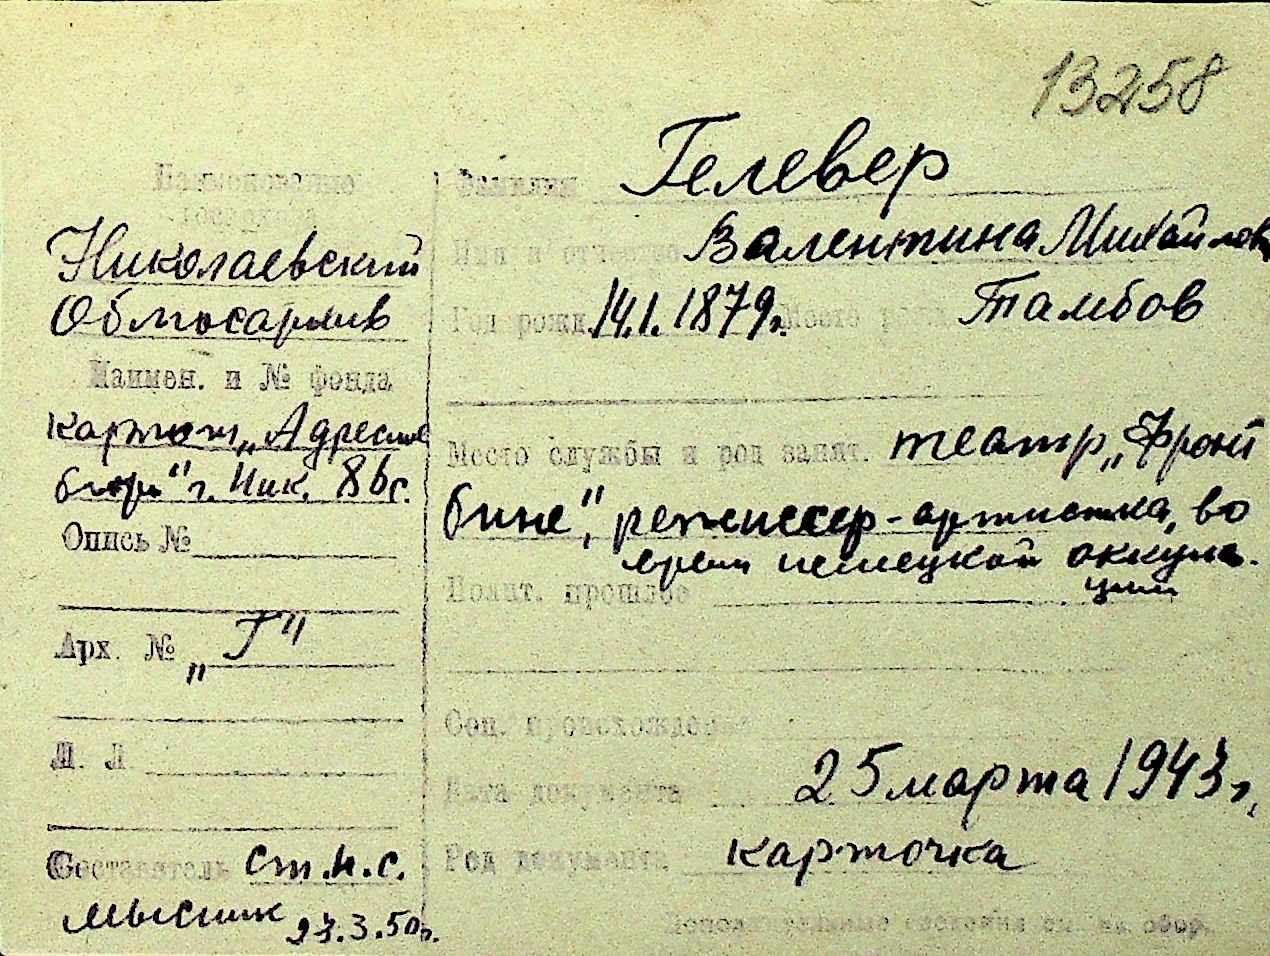 13258
Наименование
госархива
Николаевский
Облгосархив
Наимен. и № фонда
картот. „Адресное
бюро" г. Ник. 86 г.
Опись №
Арх. № „Г"
Л. Л.
Составитель ст. н. с.
Мысник 23.3.50 г.
Фамилия Гелевер
Имя и отчество Валентина Михайлов
Год рожд. 14.1.1879 г. Место рожд. Тамбов
Место службы и род занят. театр „Фронт
бине", режиссер-артистка, во
время немецкой оккупа-
ции
Полит. прошлое
Соц. происхождение
Дата документа 25 марта 1943 г.
Род документа карточка
Дополнительные сведения см. на обор.